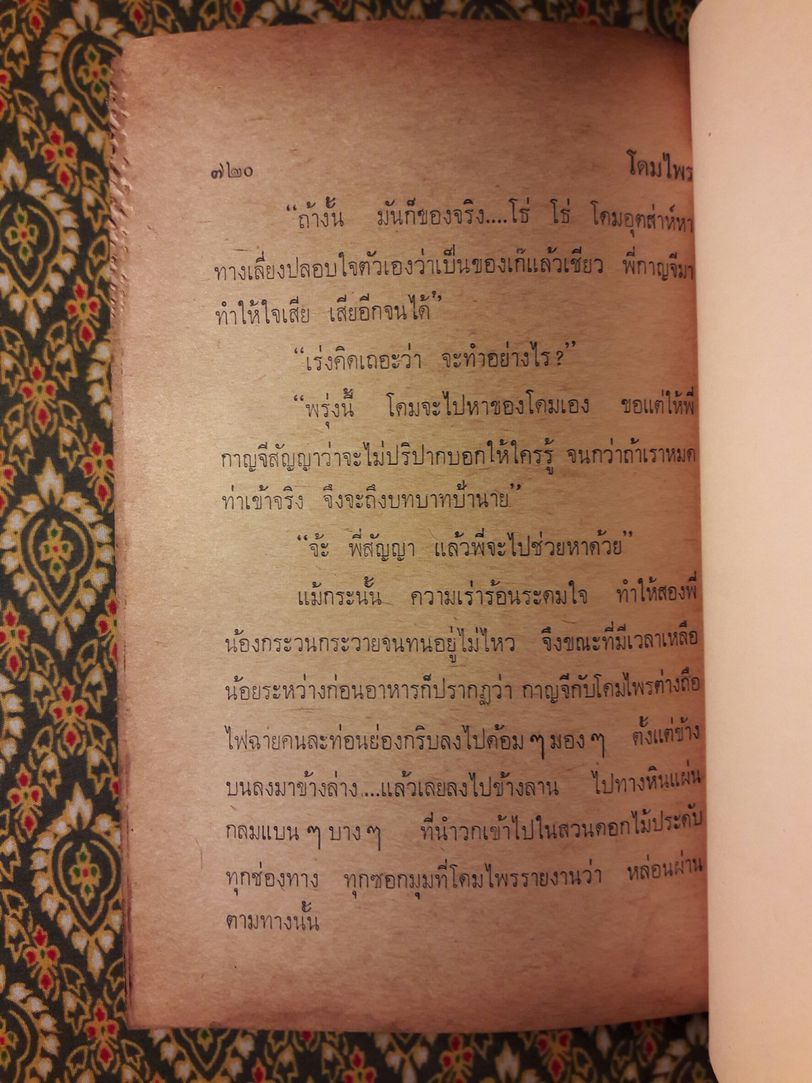 ๗๒๐ โคมไพร
“ถ้างั้น มันก็ของจริง....โธ่ โธ่ โคมอุตส่าห์หา
ทางเลี่ยงปลอบใจตัวเองว่าเป็นของเก๊แล้วเชียว พี่กาญจีมา
ทำให้ใจเสีย เสียอีกจนได้”
“เร่งคิดเถอะว่า จะทำอย่างไร?”
“พรุ่งนี้ โคมจะไปหาของโคมเอง ขอแต่ให้พี่
กาญจีสัญญาว่าจะไม่ปริปากบอกให้ใครรู้ จนกว่าถ้าเราหมด
ท่าเข้าจริง จึงจะถึงบทบาทป้านาย”
“จ้ะ พี่สัญญา แล้วพี่จะไปช่วยหาด้วย”
แม้กระนั้น ความเร่าร้อนระดมใจ ทำให้สองพี่
น้องกระวนกระวายจนทนอยู่ไม่ไหว จึงขณะที่มีเวลาเหลือ
น้อยระหว่างก่อนอาหารก็ปรากฏว่า กาญจีกับโคมไพรต่างถือ
ไฟฉายคนละท่อนย่องกริบลงไปด้อม ๆ มอง ๆ ตั้งแต่ข้าง
บนลงมาข้างล่าง....แล้วเลยลงไปข้างลาน ไปทางหินแผ่น
กลมแบน ๆ บาง ๆ ที่นำวกเข้าไปในสวนดอกไม้ประดับ
ทุกช่องทาง ทุกซอกมุมที่โคมไพรรายงานว่า หล่อนผ่าน
ตามทางนั้น